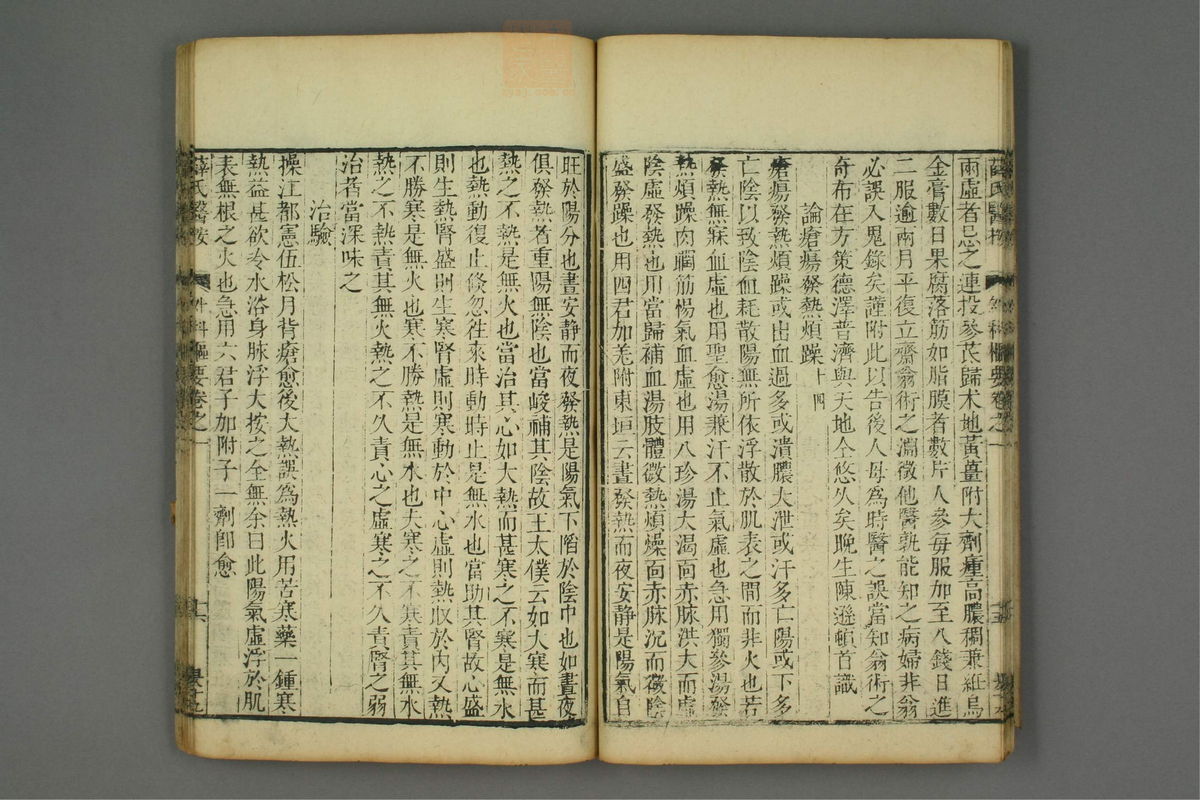 兩虛者忌之連投參芪歸术地黃薑附大劑瘇高膿稠兼紝烏
金膏數日果腐落筋如脂膜者數片人參每服加至八錢日進
二服逾兩月平復立齋翁術之漏徵他醫孰能知之病婦非翁
必誤入鬼錄矣謹附此以告後人毋為時醫之誤當知翁術之
奇布在方策德澤普濟與天地仝悠久矣晚生陳遜頓首識
論瘡瘍發熱煩躁 十四
瘡瘍發熱煩躁或出血過多或潰膿大泄或汗多亡陽或下多
亡陰以致陰血耗散陽無所依浮散於肌表之間而非火也若
發熱無寐血虛也用聖愈湯兼汗不止氣虛也急用獨參湯發
熱煩躁肉瞤筋惕氣血虛也用八珍湯大渴面赤脉洪大而虛
陰虛發熱也用當歸補血湯肢體微熱煩燥面赤脉沉而微陰
盛發躁也用四君加羌附東垣云晝發熱而夜安靜是陽氣自
旺於陽分也晝安靜而夜發熱是陽氣下陷於陰中也如晝夜
俱發熱者重陽無陰也當峻補其陰故王太僕云如大寒而甚
熱之不熱是無火也當治其心如大熱而甚寒之不寒是無水
也熱動復止倏忽徃來時動時止是無水也當助其腎故心盛
則生熱腎盛則生寒腎虛則寒動於中心虛則熱收於內又熱
不勝寒是無火也寒不勝熱是無水也大寒之不寒責其無水
熱之不熱責其無火熱之不久責心之虛寒之不久責腎之弱
治者當深味之
治驗
操江都憲伍松月背瘡愈後大熱誤為熱火用苦寒藥一鍾寒
熱益甚欲冷水浴身脉浮大按之全無余曰此陽氣虛浮於肌
表無根之火也急用六君子加附子一劑卽愈
薛氏醫按 外科樞要卷之一